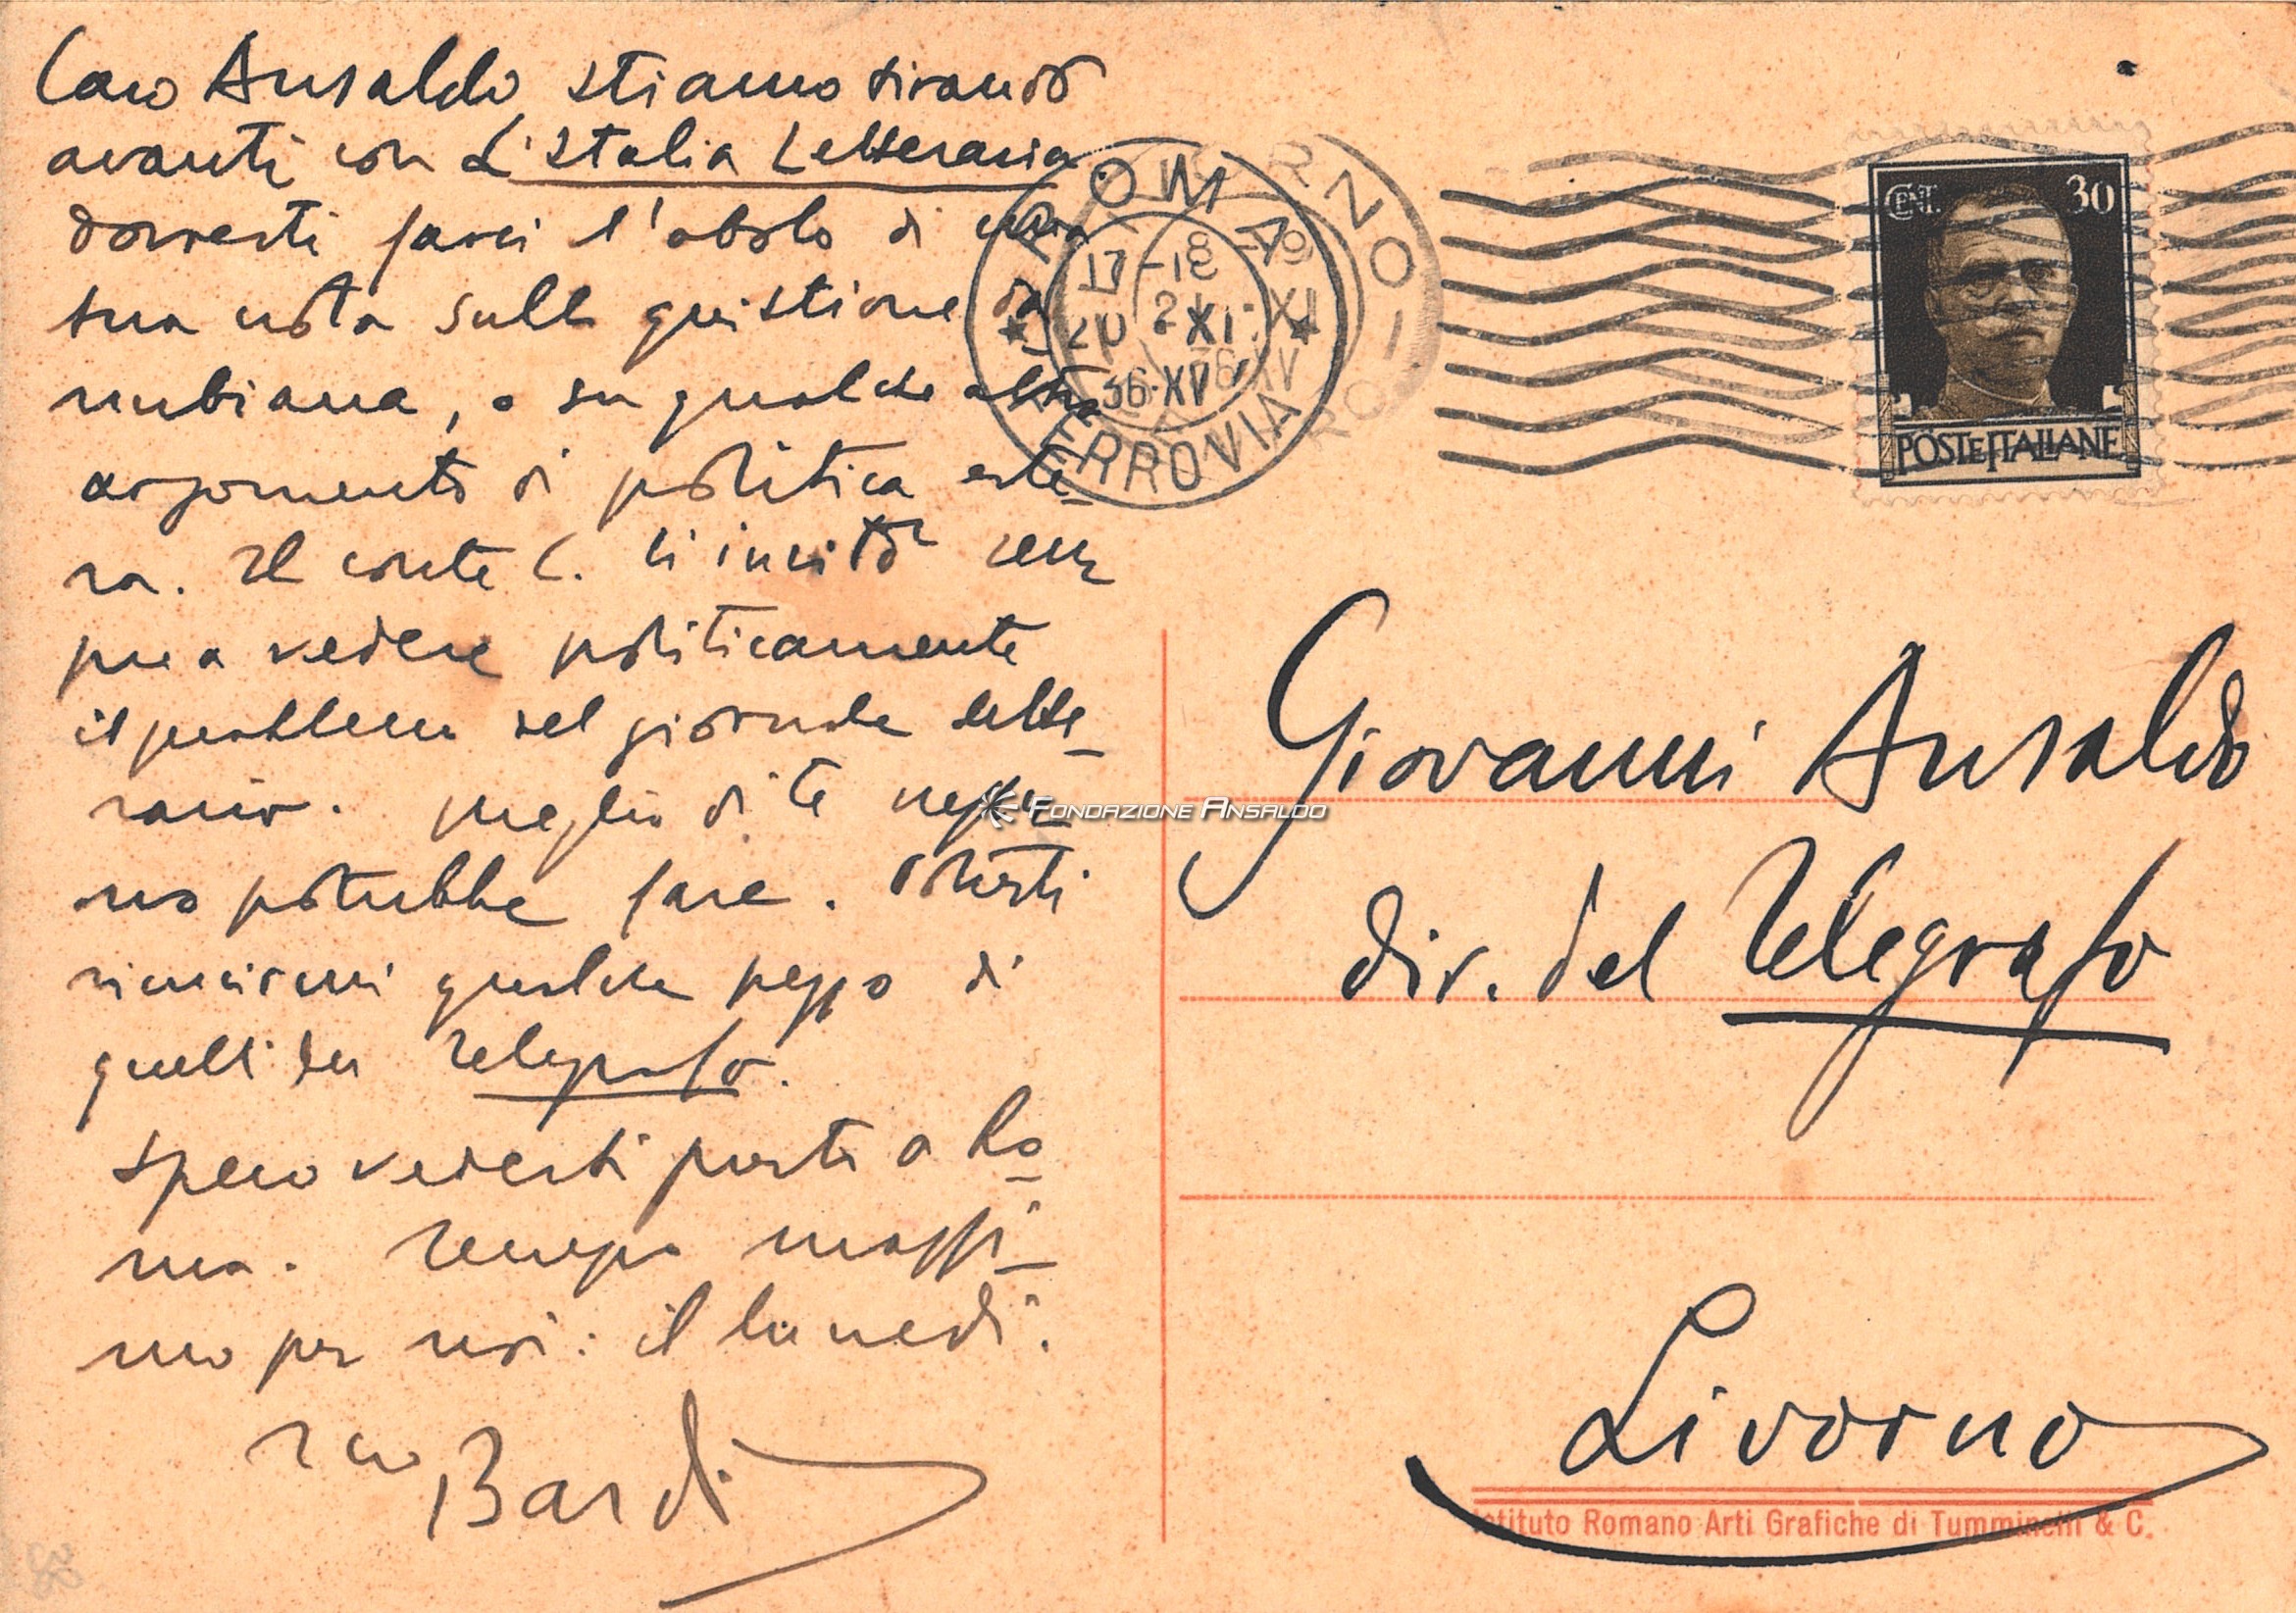 Caro Ansaldo, stiamo tirando
avanti con L'Italia Letteraria.
dovresti farci l'obolo di una
tua nota sulla quistione da
nubiana, o su qualche altro
argomento di politica este-
ra. Il conte C. ti invitò sem
pre a vedere politicamente
il problema del giornale lette-
rario. Meglio di te nessu-
no potrebbe fare. Potresti
rimandarmi qualche pezzo di
quelli del Telegrafo.
Spero vederti presto a Ro-
ma. Tempo massi-
mo per noi: il lunedì.
tuo Bardi
ROMA
FERROVIA
17-18
20·XI
36·XV
CENT. 30
POSTE ITALIANE
Giovanni Ansaldo
dir. del Telegrafo
Livorno
Istituto Romano Arti Grafiche di Tumminelli & C.
FONDAZIONE ANSALDO